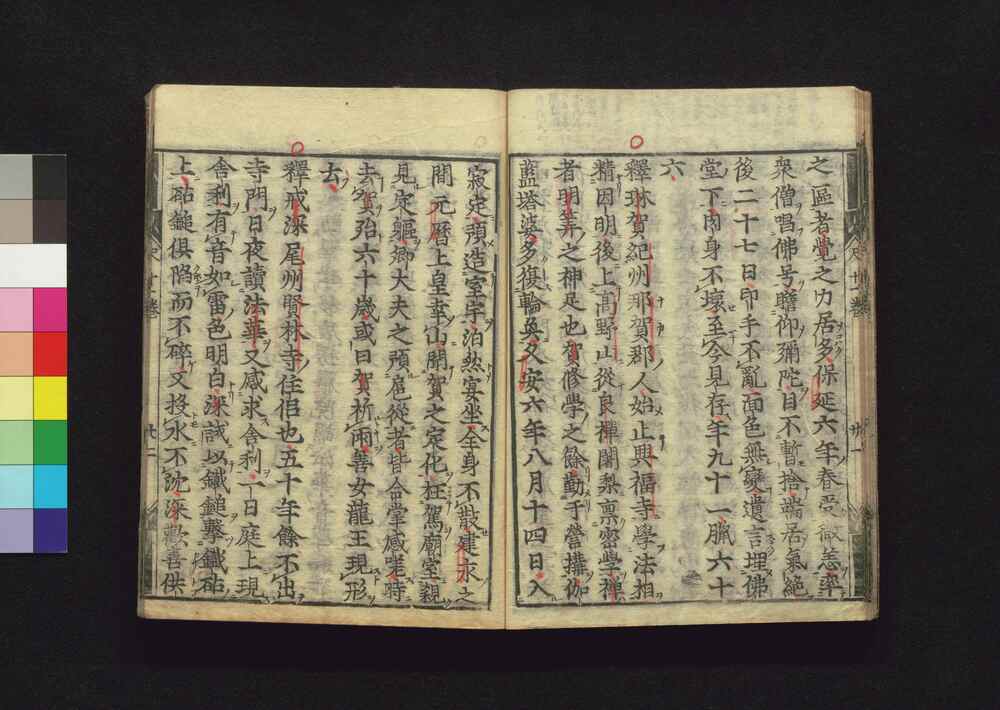 之區者覺之力居多保延六年春受微恙率
衆僧唱佛号瞻仰彌陀目不暫捨端居氣絶
後二十七日印手不亂面色無變遺言埋佛
堂下肉身不壞至今見存年九十一臘六十
六
釋琳賀紀州那賀郡人始止興福寺學法相
精因明後上髙野山從良禪闍梨禀密學禪
者明筭之神足也賀修學之餘勤于營構伽
藍塔婆多復輪奐久安六年八月十四日入
寂定預造室宇泊然宴坐全身不散建永之
間元曆上皇幸山聞賀之定化枉駕廟室親
見定軀卿大夫之預扈從者皆合掌感嘆時
去賀殆六十歲或曰賀祈雨善女龍王現形
去
釋戒深尾州賢林寺住侶也五十年餘不出
寺門日夜讀法華又感求舍利一日庭上現
舍利有音如雷色明白深試以鐵鎚擊鐵砧
上砧鎚俱陷而不碎又投水不沈深歡喜供
廿一
廿二